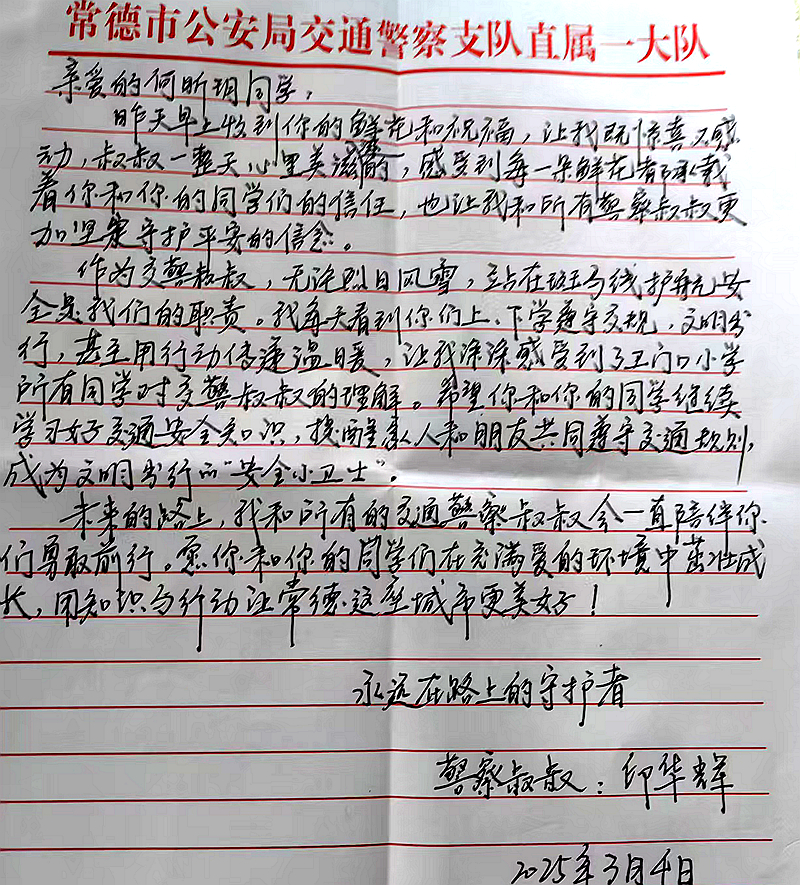 常德市公安局交通警察支队直属一大队
亲爱的何昕玥同学，
昨天早上收到你的鲜花和祝福，让我既惊喜又感
动，叔叔一整天心里美滋滋的，感受到每一朵鲜花都承载
着你和你的同学们的信任，也让我和所有警察叔叔更
加坚定守护平安的信念。
作为交警叔叔，无论烈日风雪，站在斑马线护航安
全是我们的职责。我每天看到你们上、下学遵守交规，文明出
行，甚至用行动传递温暖，让我深深感受到了卫门口小学
所有同学对交警叔叔的理解。希望你和你的同学继续
学习好交通安全知识，提醒家人和朋友共同遵守交通规则，
成为文明出行的“安全小卫士”。
未来的路上，我和所有的交通警察叔叔会一直陪伴你
们勇敢前行。愿你和你的同学们在充满爱的环境中茁壮成
长，用知识与行动让常德这座城市更美好！
永远在路上的守护者
警察叔叔：印华辉
2025年3月4日